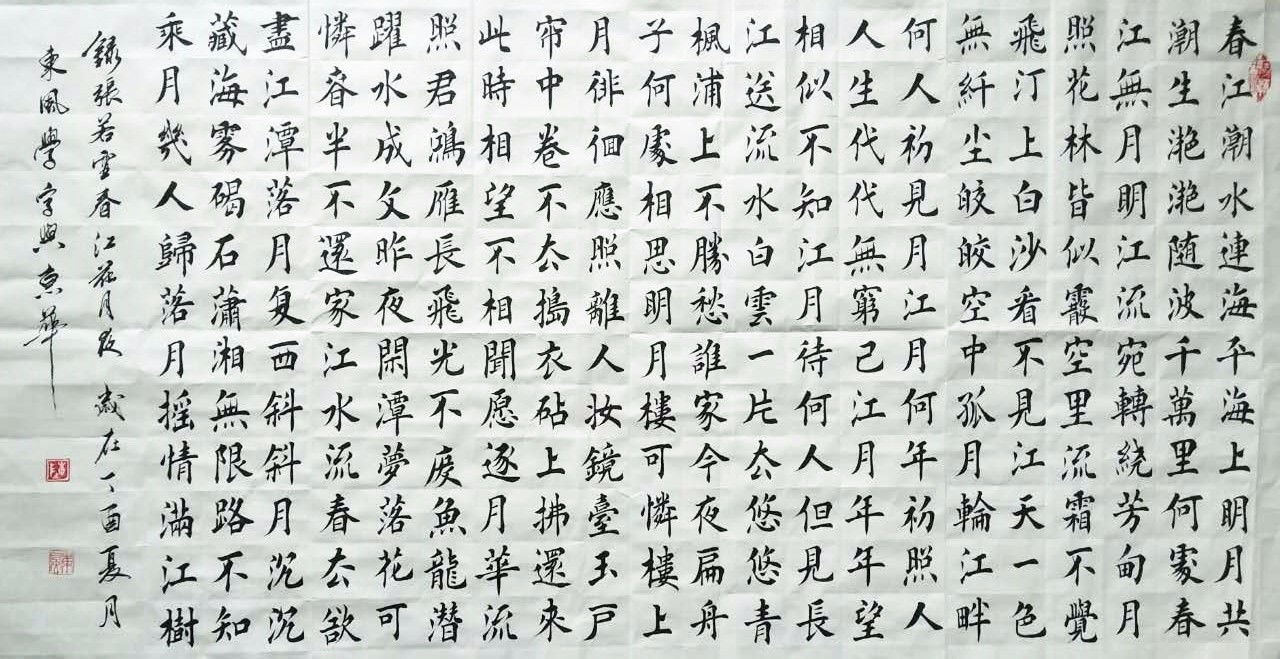 春江潮水連海平海上明月共
潮生滟滟随波千萬里何處春
江無月明江流宛轉繞芳甸月
照花林皆似霰空里流霜不覺
飛汀上白沙看不見江天一色
無纤尘皎皎空中孤月輪江畔
何人初見月江月何年初照人
人生代代無窮已江月年年望
相似不知江月待何人但見長
江送流水白雲一片去悠悠青
楓浦上不勝愁誰家今夜扁舟
子何處相思明月樓可憐樓上
月徘徊應照離人妆鏡臺玉戶
帘中卷不去搗衣砧上拂還來
此時相望不相聞愿逐月華流
照君鴻雁長飛光不度魚龍潜
躍水成文昨夜閑潭夢落花可
憐春半不還家江水流春去欲
盡江潭落月复西斜斜月沉沉
藏海雾碣石瀟湘無限路不知
乘月幾人歸落月摇情滿江樹
錄張若虚春江花月夜 歲在丁酉夏月
東風學字